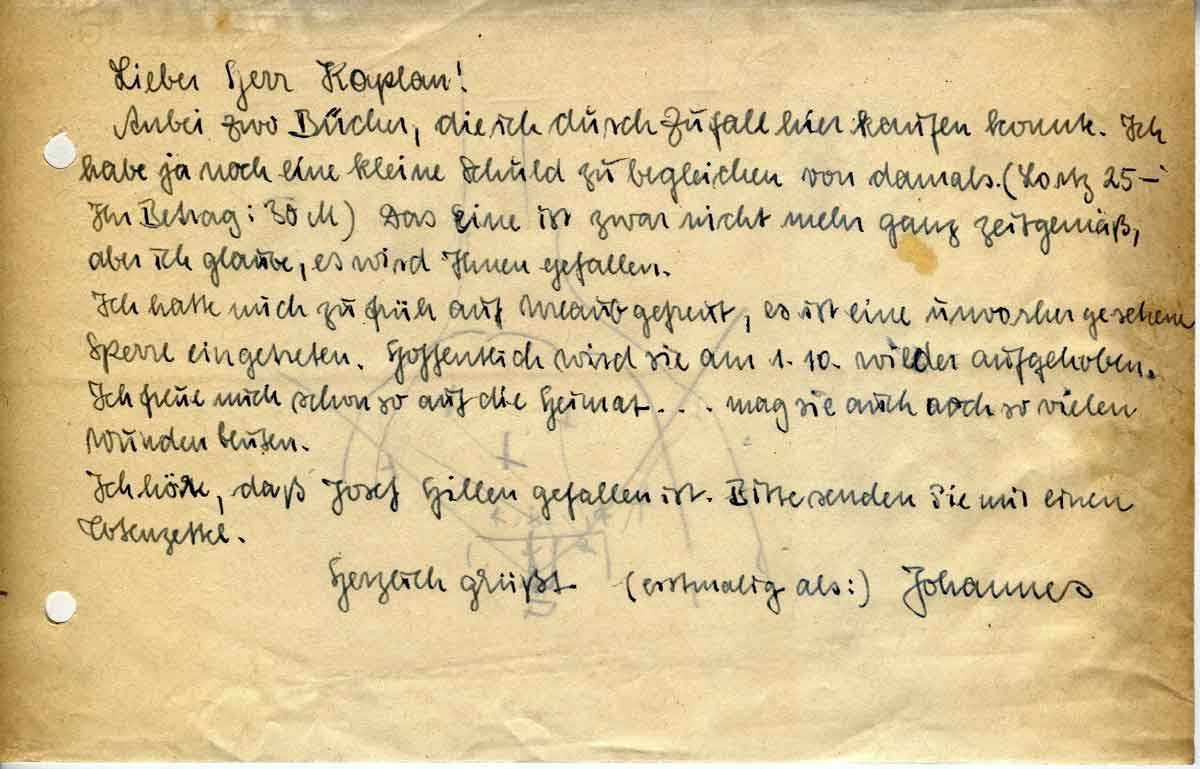 Lieber Herr Kaplan!
Anbei zwo Bücher, die ich durch Zufall hier kaufen konnte. Ich
habe ja noch eine kleine Schuld zu begleichen von damals. (Lortz 25–
Ihr Betrag: 30 M) Das Eine ist zwar nicht mehr ganz zeitgemäß,
aber ich glaube, es wird Ihnen gefallen.
Ich hatte mich zu früh auf Urlaub gefreut, es ist eine unvorhergesehene
Sperre eingetreten. Hoffentlich wird sie am 1. 10. wieder aufgehoben.
Ich freue mich schon so auf die Heimat... mag sie auch noch so vielen
Wunden bluten.
Ich höre, daß Josef Hillen gefallen ist. Bitte senden Sie mir einen
Totenzettel.
Herzlich grüßt (erstmalig als:) Johannes